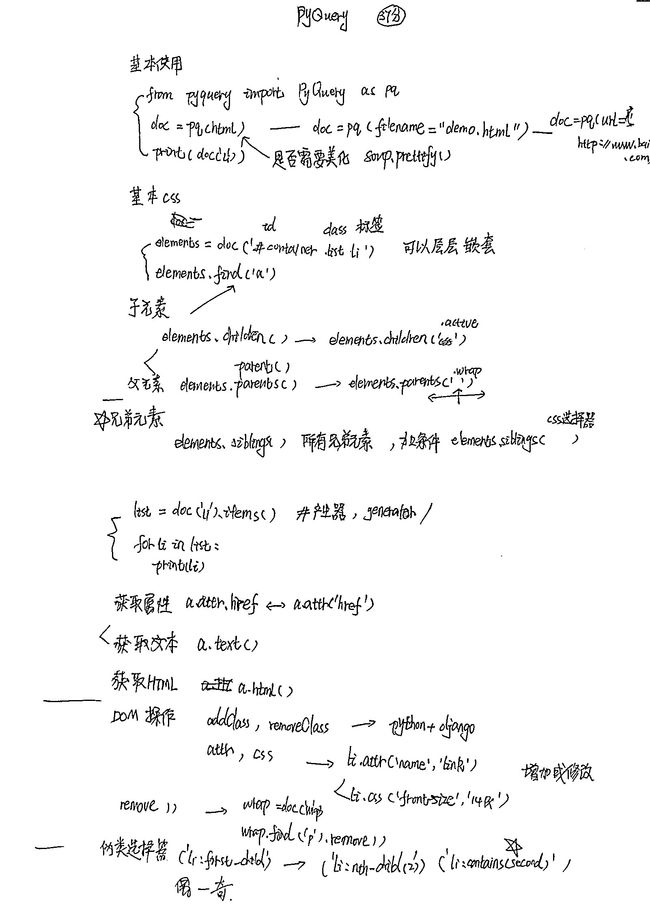 PyQuery
基本使用
from pyquery import PyQuery as pq
doc = pq(html) — doc = pq (filename = "demo.html") — doc=pq(url=
http://www.bai
.com
print(doc('li')) 是否需要美化 soup.prettify()
基本css
id class 标签
elements = doc ('#container .list li') 可以层层嵌套
elements.find('a')
子元素
.active
elements.children() → elements.children('css')
parent()
.wrap
父元素 elements.parents() → elements.parents(' ')
☆兄弟元素
css选择器
elements.siblings, 所有兄弟元素, 加条件 elements.siblings( )
list = doc('li').items() #产生器, generator /
for li in list:
print(li)
获取属性 a.attr.href ↔ a.attr('href')
获取文本 a.text()
获取HTML a.html()
DOM 操作 addClass, removeClass → python+django
attr, css → li.attr('name','link') 增加或修改
li.css('front-size','14px')
remove() → wrap=doc('wrap
wrap.find('p').remove()
伪类选择器 ('li:first-child') → ('li:nth-child(2)') ('li:contains(second)'
偶一奇.